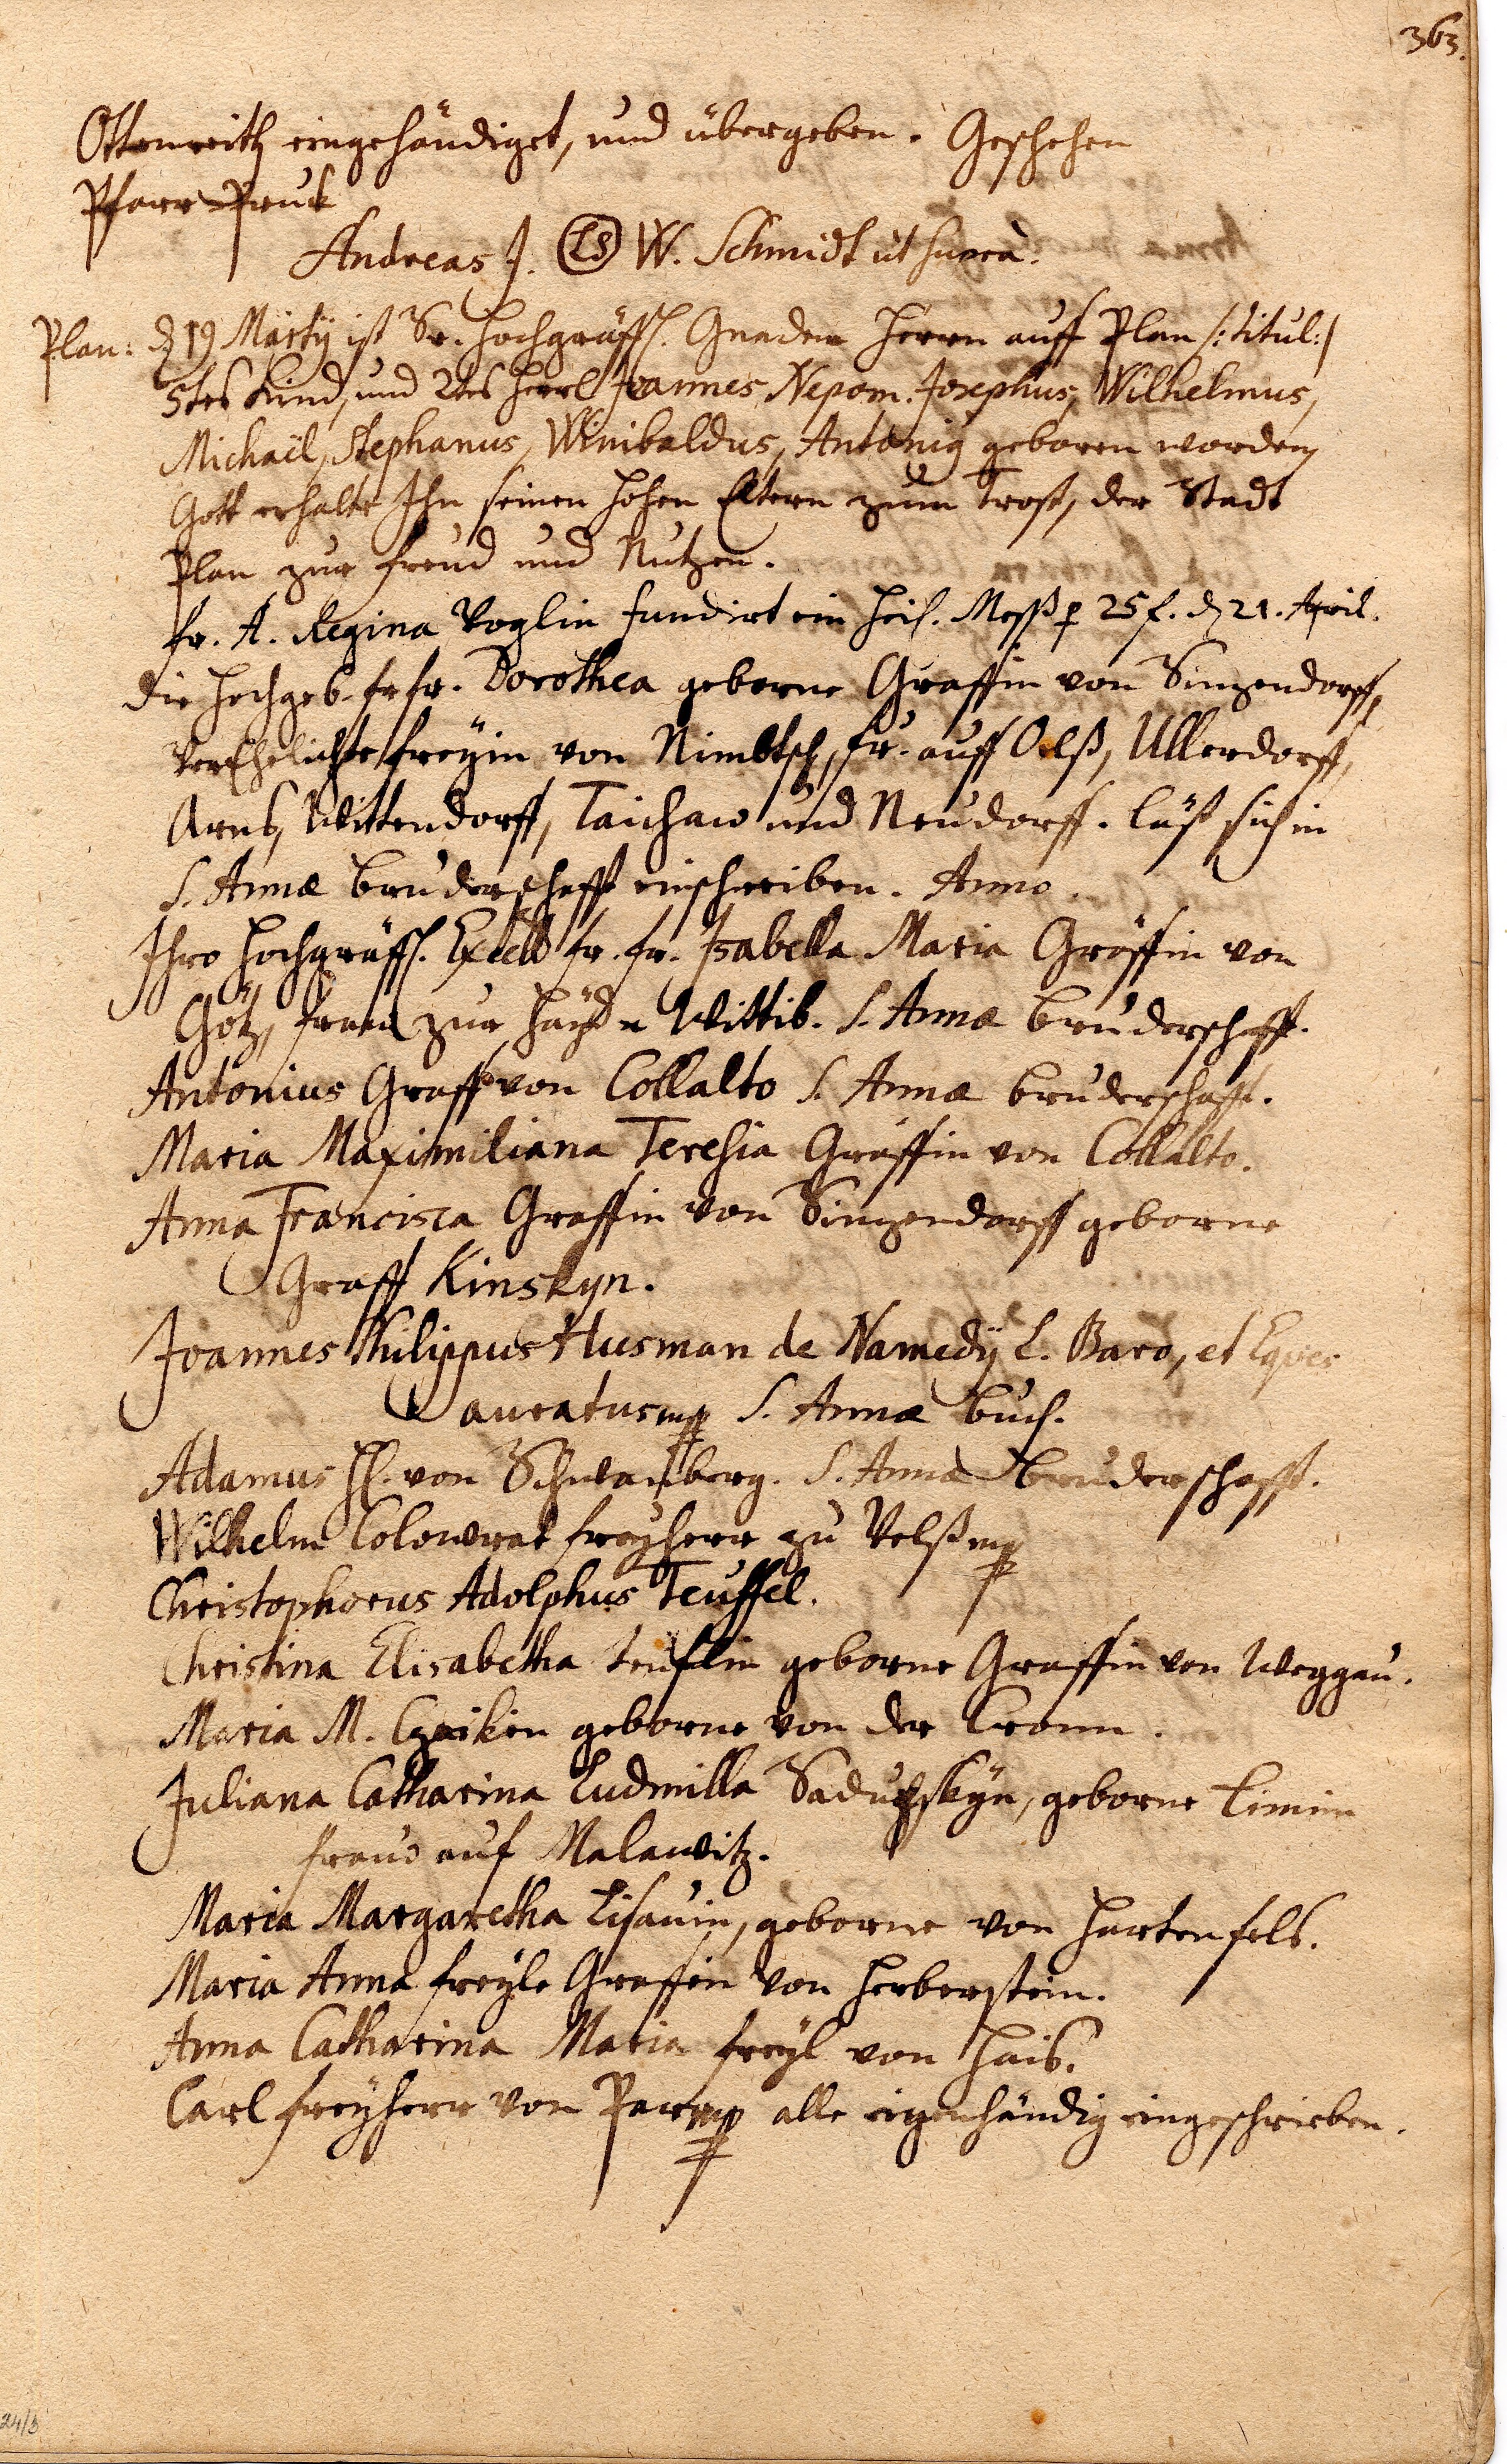 363.
Ottenreith eingehändiget, und übergeben. Geschehen
Pfarr Pruck
Andreas J. LS W. Schmidt ut supra.
Plan: d 19 Martÿ ist Sr. Hochgräffl. Gnaden Herrn auff Plan /: titul:/
5tes Kind, und 2tes Herrl Joannes Nepom. Josephus, Wilhelmus,
Michaël, Stephanus, Winibaldus, Antonig geboren worden,
Gott erhalte Ihn seinen hohen Eltern zum trost, der Stadt
Plan zur freud und Nutzen.
Fr. A. Regina Voglin fundirt ein heil. Mess p 25 f. d 21. April.
Die Hochgeb. fr fr. Dorothea geborne Graffin von Sinzendorff,
Verehelichte freyin von Nimbtsch, fr. auff Oelß, Ullerdorff,
Arnß, Wittendorff, Taichaw und Neudorff. läst sich in
S. Annæ bruderschafft einschreiben. Anno.
Ihro Hochgräffl. Excell fr. fr. Isabella Maria Gräffin von
Götz, frau zur Hayd Wittib. S. Annæ bruderschafft.
Antonius Graff von Collalto S. Annæ bruderschafft.
Maria Maximiliana Teresia Gräffin von Collalto.
Anna Francisca Graffin von Sinzendorff geborne
Graff Kinskyn.
Joannes Philippus Husman de Namedÿ L. Baro, et Eques
auratus mp S. Annæ buch.
Adamus H. von Schwanberg. S. Annæ bruderschafft.
Wilhelm Colowrat freyherr zu Velß mp
Christophorus Adolphus Teuffel.
Christina Elisabetha teuflin geborne Graffin von Weggau.
Maria M. Czeikin geborne von der Cronn.
Juliana Catharina Ludmilla Saduskÿn, geborne Limin
frau auf Malawitz.
Maria Margaretha Lisauin, geborne von Hartenfels.
Maria Anna freyle Graffin von Herberstein.
Anna Catharina Maria freyl von Hais.
Carl freyherr von Parr mp alle eigenhändig eingeschrieben.
24/3